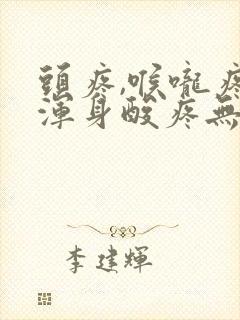 頭疼,喉嚨疼
渾身酸疼無
李建輝